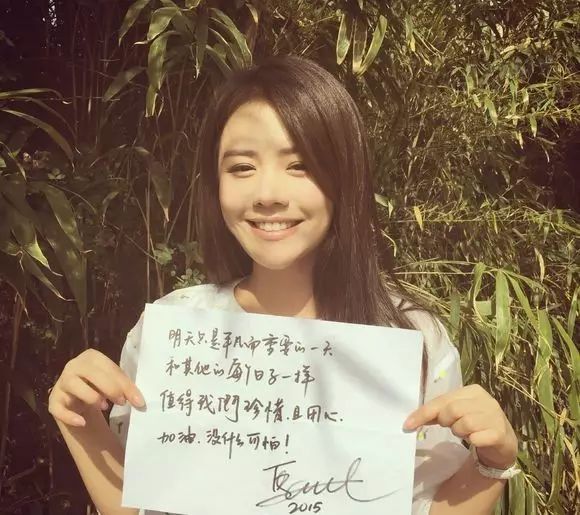 明天只是平凡而重要的一天
和其他的每个日子一样
值得我们珍惜且用心.
加油.没什么可怕!
2015